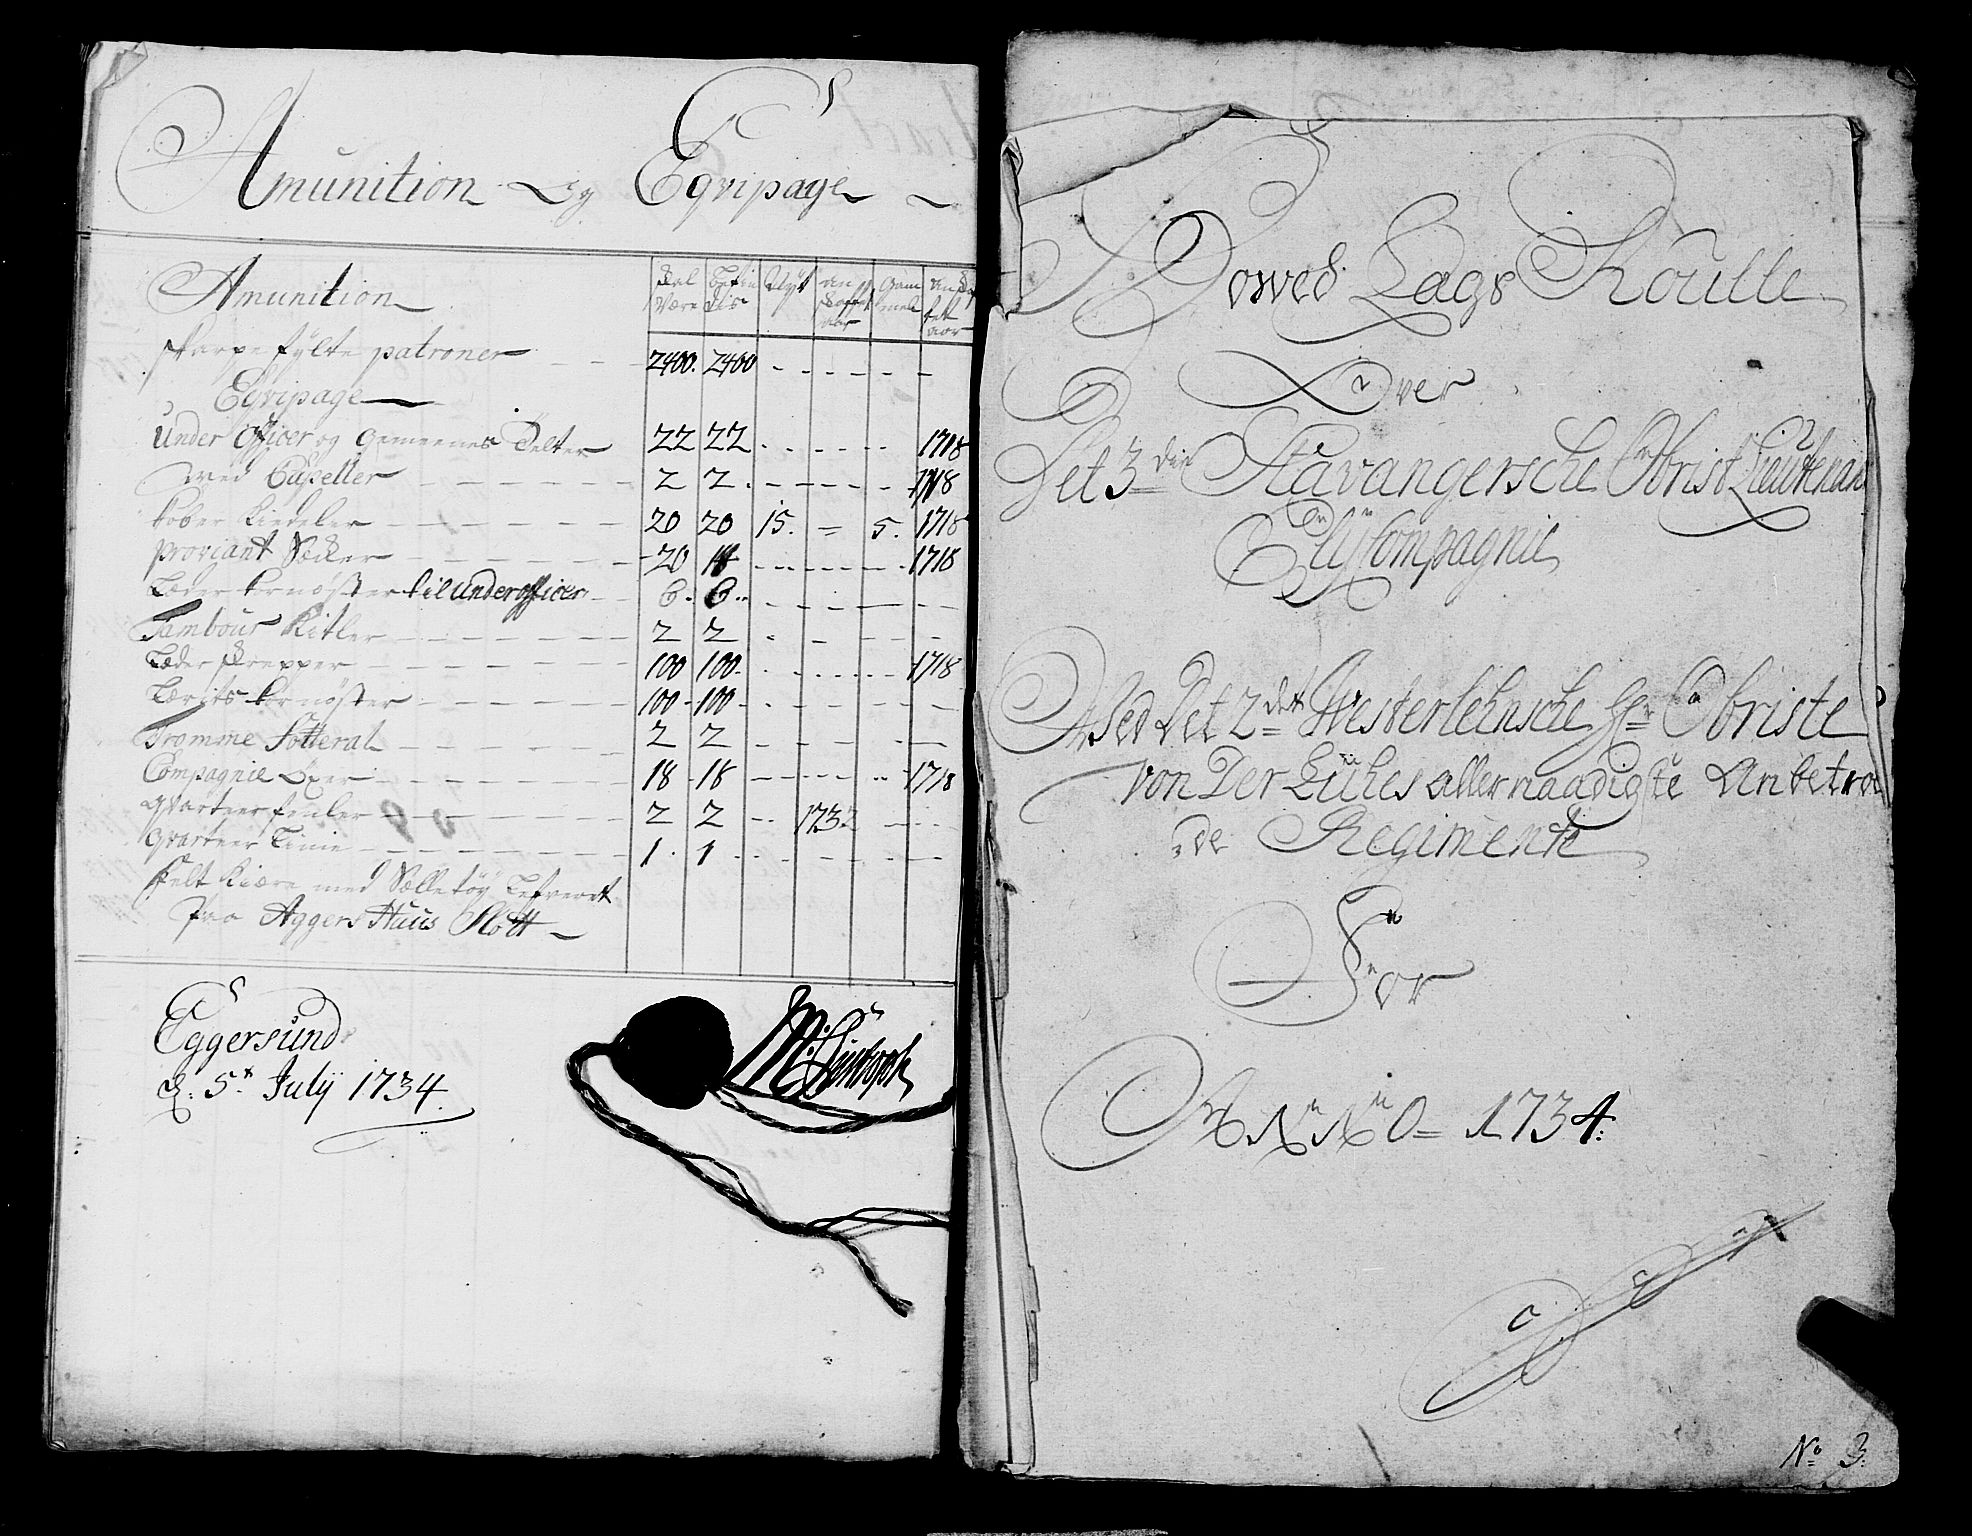 Amunition og Eqvipage
Amunition
Skal Være
Befindis
Nyt
anskaffet aar
Gammel
anskaffet aar
skarpe fylte patroner 2400. 2400
Eqvipage
Under Officer og Gemeenes Telter 22 22 1718
med Capeller 2 2 1718
kober Kiedeler 20 20 15. 5. 1718
proviant Secker 20 18 1718
Læder tornøster til underofficer 6. 6
Tambour Kitler 2 2
Læder skrepper 100 100 1718
Lærits tornøster 100 100
Tromme fotteral 2 2
Compagnie Øxer 18 18 1718
qvarteer fenler 2 2 1732
qvarteer Linie 1. 1
felt Kiære med Selletøy Lefveert
paa Aggers Huus Slott
Eggersund
d. 5t July 1734.
M:
Howed Lags Roulle
Over
Det 3die Stavangersche Obrist Lieutenan
Compagnie
Med Det 2det Westerlehnsche Hr Obriste
von Der Lühes aller naadigste Anbetro
de Regimente
For
ANNO 1734.
No 3.